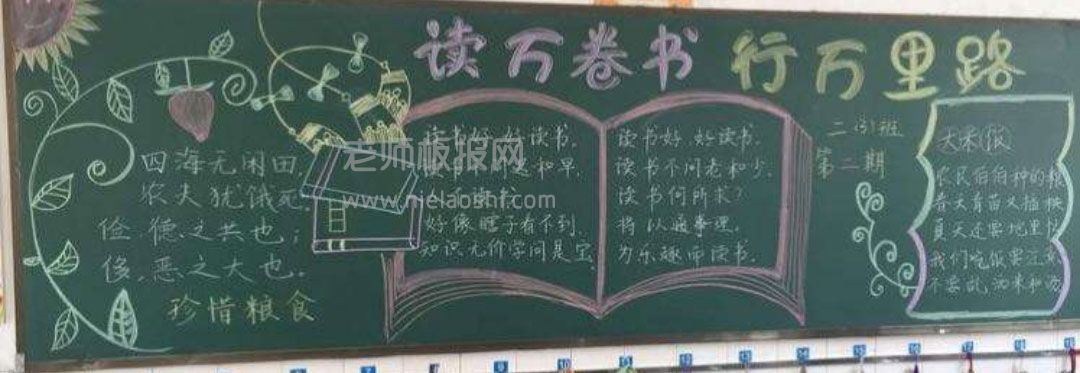 读万卷书 行万里路
四海无闲田,
农夫犹饿死。
俭.德之共也;
侈.恶之大也。
珍惜粮食
读书好 好读书.
读书 和早.
不读书
好像瞎子看不到.
知识无价学问是宝.
读书好 好读书.
读书不问老和少.
读书何所求?
将以通事理.
为乐趣而读书.
二(3)班
第二期
农民伯伯种的粮
春天育苗又插秧
夏天还要地里忙
我们吃饭要注意
不要乱洒米和汤
老师板报网
www.njelaoshi.com
7
9
10
11
12
13
14
15
16